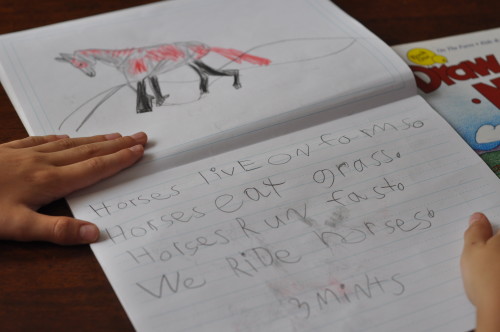 HORSES liVE ON fo Ms.
HORSES eat grass.
HORSES RUN fast.
We RiDe horses.
3 MiNtS
DRAW